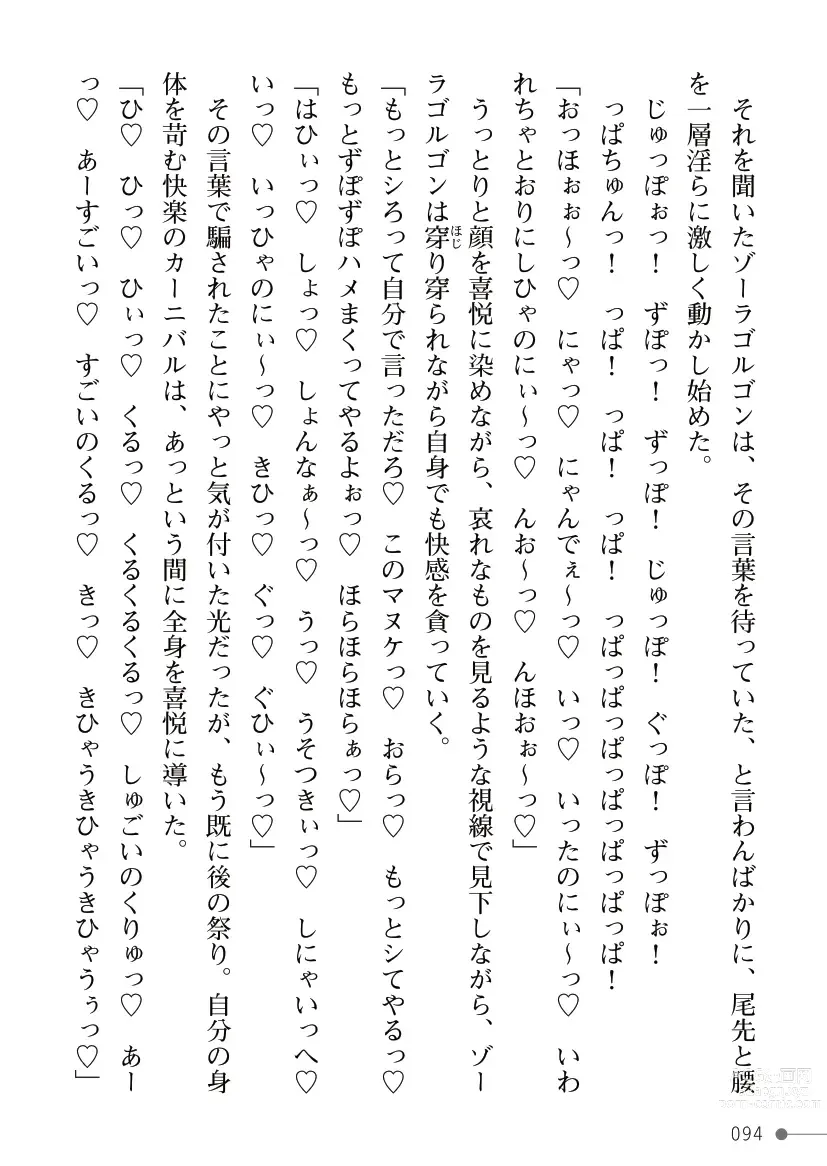 それを聞いたゾーラゴルゴンは、その言葉を待っていた、と言わんばかりに、尾先と腰
を一層淫らに激しく動かし始めた。
じゅっぽぉっ！　ずぽっ！　ずっぽ！　じゅっぽ！　ぐっぽ！　ずっぽぉ！
っぱちゅんっ！　っぱ！　っぱ！　っぱ！　っぱっぱっぱっぱっぱっぱっぱ！
「おっほぉぉ～っ♡　にゃっ♡　にゃんでぇ～っ♡　いっ♡　いったのにぃ～っ♡　いわ
れちゃとおりにしひゃのにぃ～っ♡　んお～っ♡　んほおぉ～っ♡」
うっとりと顔を喜悦に染めながら、哀れなものを見るような視線で見下しながら、ゾー
ラゴルゴンは穿り穿られながら自身でも快感を貪っていく。
ほじ
「もっとシろって自分で言っただろ♡　このマヌケっ♡　おらっ♡　もっとシてやるっ♡
もっとずぽずぽハメまくってやるよぉっ♡　ほらほらほらぁっ♡」
「はひぃっ♡　しょっ♡　しょんなぁ～っ♡　うっ♡　うそつきぃっ♡　しにゃいっへ♡
いっ♡　いっひゃのにぃ～っ♡　きひっ♡　ぐっ♡　ぐひぃ～っ♡」
その言葉で騙されたことにやっと気が付いた光だったが、もう既に後の祭り。自分の身
体を苛む快楽のカーニバルは、あっという間に全身を喜悦に導いた。
「ひ♡　ひっ♡　ひぃっ♡　くるっ♡　くるくるくるっ♡　しゅごいのくりゅっ♡　あー
っ♡　あーすごいっ♡　すごいのくるっ♡　きっ♡　きひゃうきひゃうきひゃうぅっ♡」
094